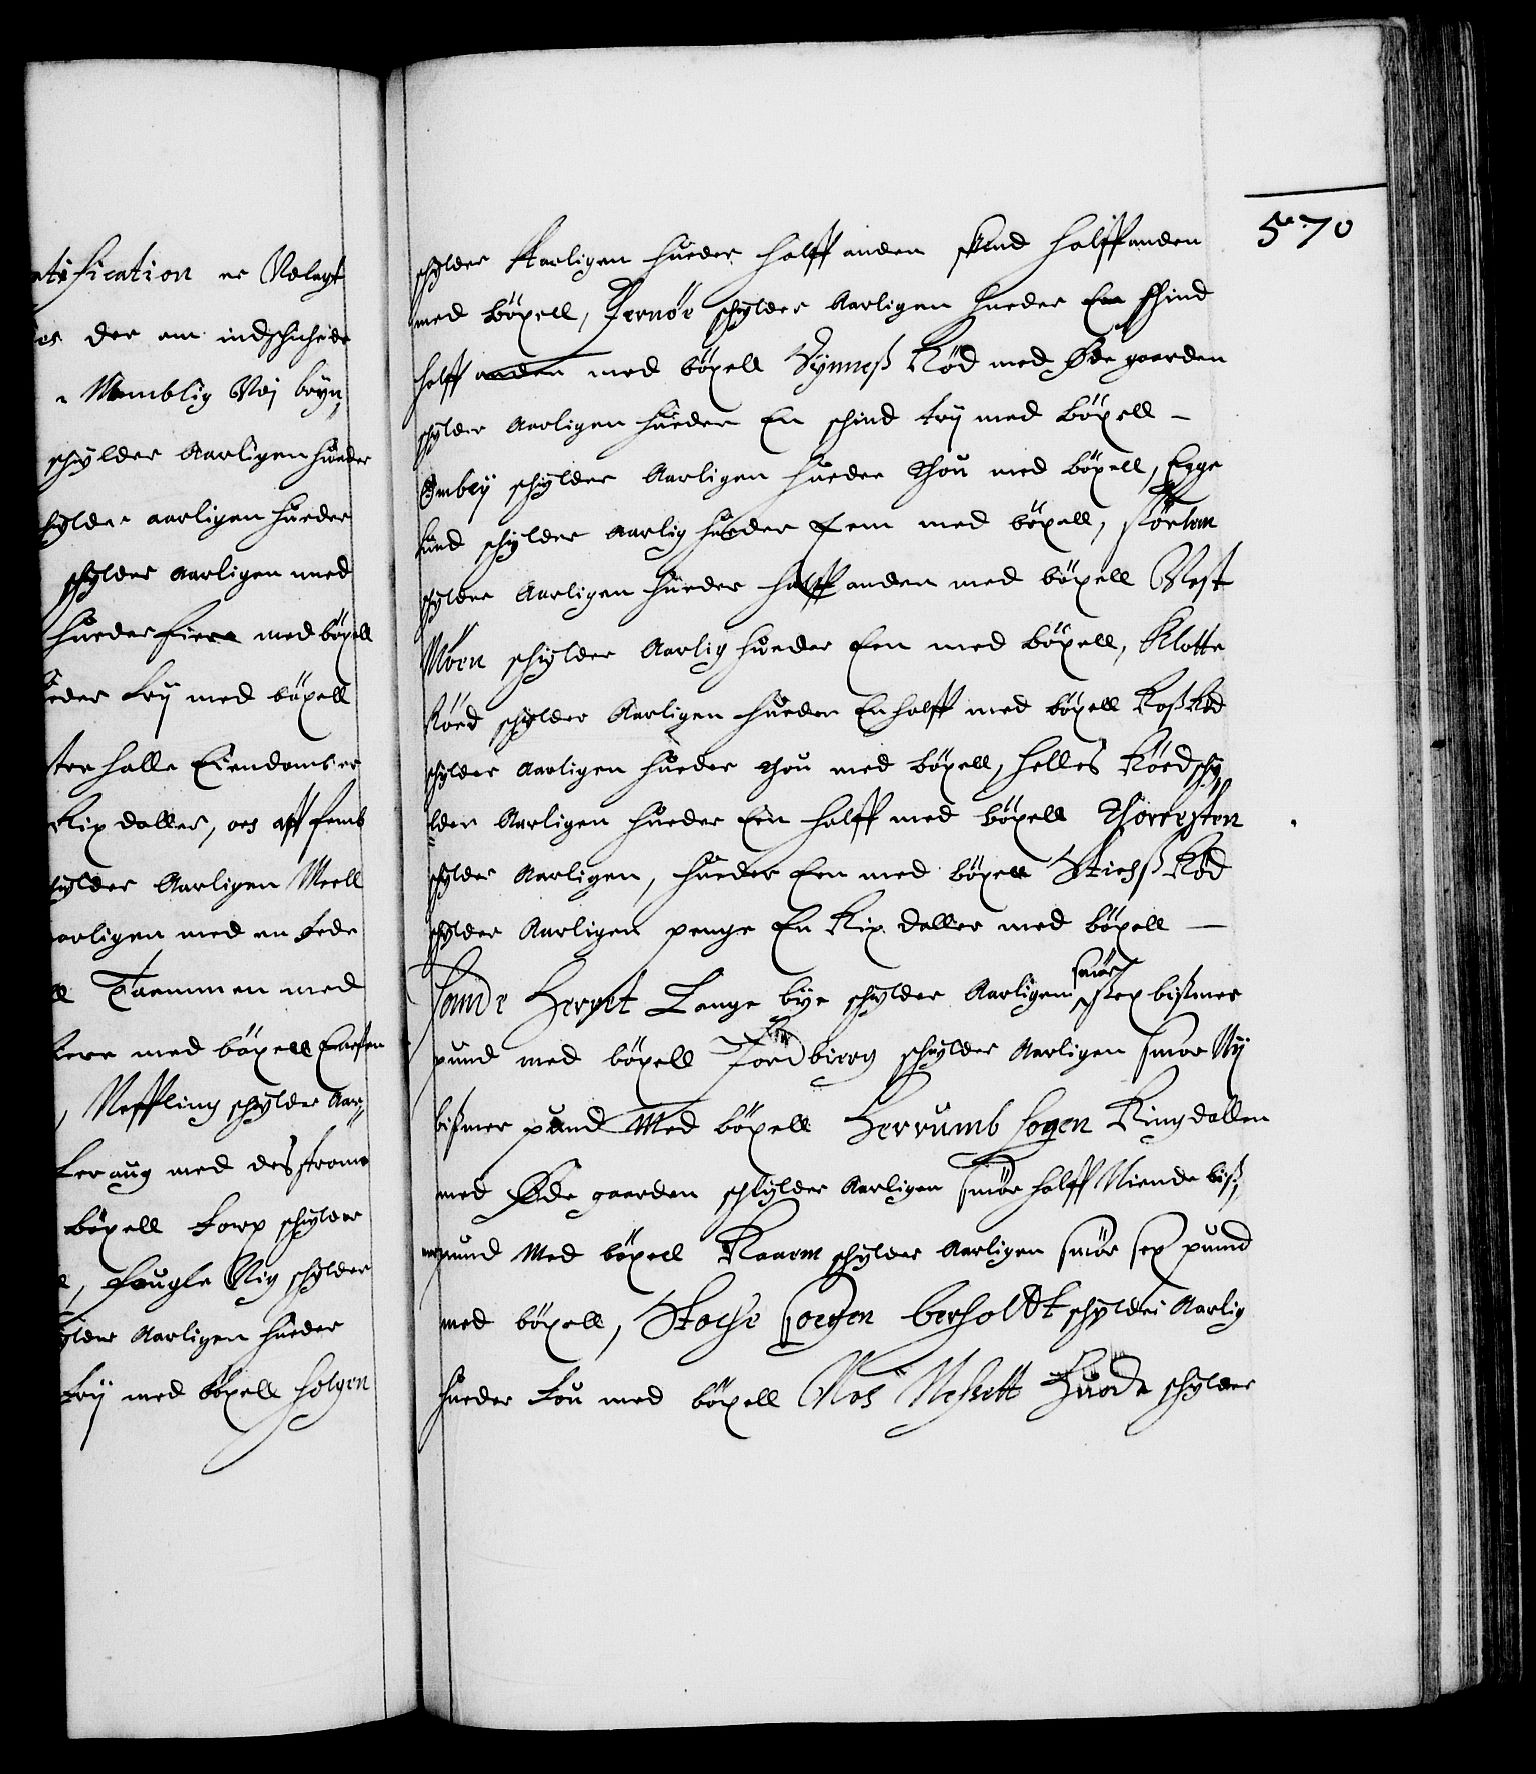 atification er Vdlagt
des der om indschichede
Nemblig Vej bryn,
schylder Aarligen hueder
hylder aarligen hueder
schylder Aarligen med
hueder fiere med böxell
eder try med böxell
ter halle Eiendombs er
Rix daller, oes aff femb
hylder Aarligen Meell
aarligen med en Fede
ll Taemmen med
kerr med böxell Enesten
, Neffling schylder Aar,,
ker aug med des strøme
böxell torp schylder
l, fougle Vig schylder
ylder Aarligen hueder
try med böxell holgen
570
schylder Aarligen hueder halff anden skind halffanden
med böxell, Jernöe schylder Aarligen hueder En skind
halff anden med böxell Vynneß Röd med Øde gaarden
schylder Aarligen hueder En schind try med böxell –
Ombey schylder Aarligen hueder Thou med böxell, Egge
sund schylder Aarlig hueder Fem med böxell, störtom
schylder Aarligen hueder halff anden med böxell Vest
Möen schylder Aarlig hueder Een med böxell, Klotte
Röed schylder Aarligen hueder En halff med böxell Roß Röd
schylder Aarligen hueder Thou med böxell, helles Röed schy,,
lder Aarligen hueder Een halff med böxell Thoreston
schylder Aarligen, hueder Een med böxell Stiehß Röd
schylder Aarligen penge En Rix daller med böxell –
Sande Herret Lange bye schylder Aarligen smör sex bißmer
pund med böxell Jordbierg schylder Aarligen smör Nij
bißmer pund Med böxell Herrumb Sogen Ringdallen
med Øde gaarden schylder Aarligen smör halff Niende biß,,
merpund Med böxell Kaarm schylder Aarligen smör sex pund
med böxell, Stoche Soegen berholdt schylder Aarlig
hueder tou med böxell Nos Neßett Huode schylder